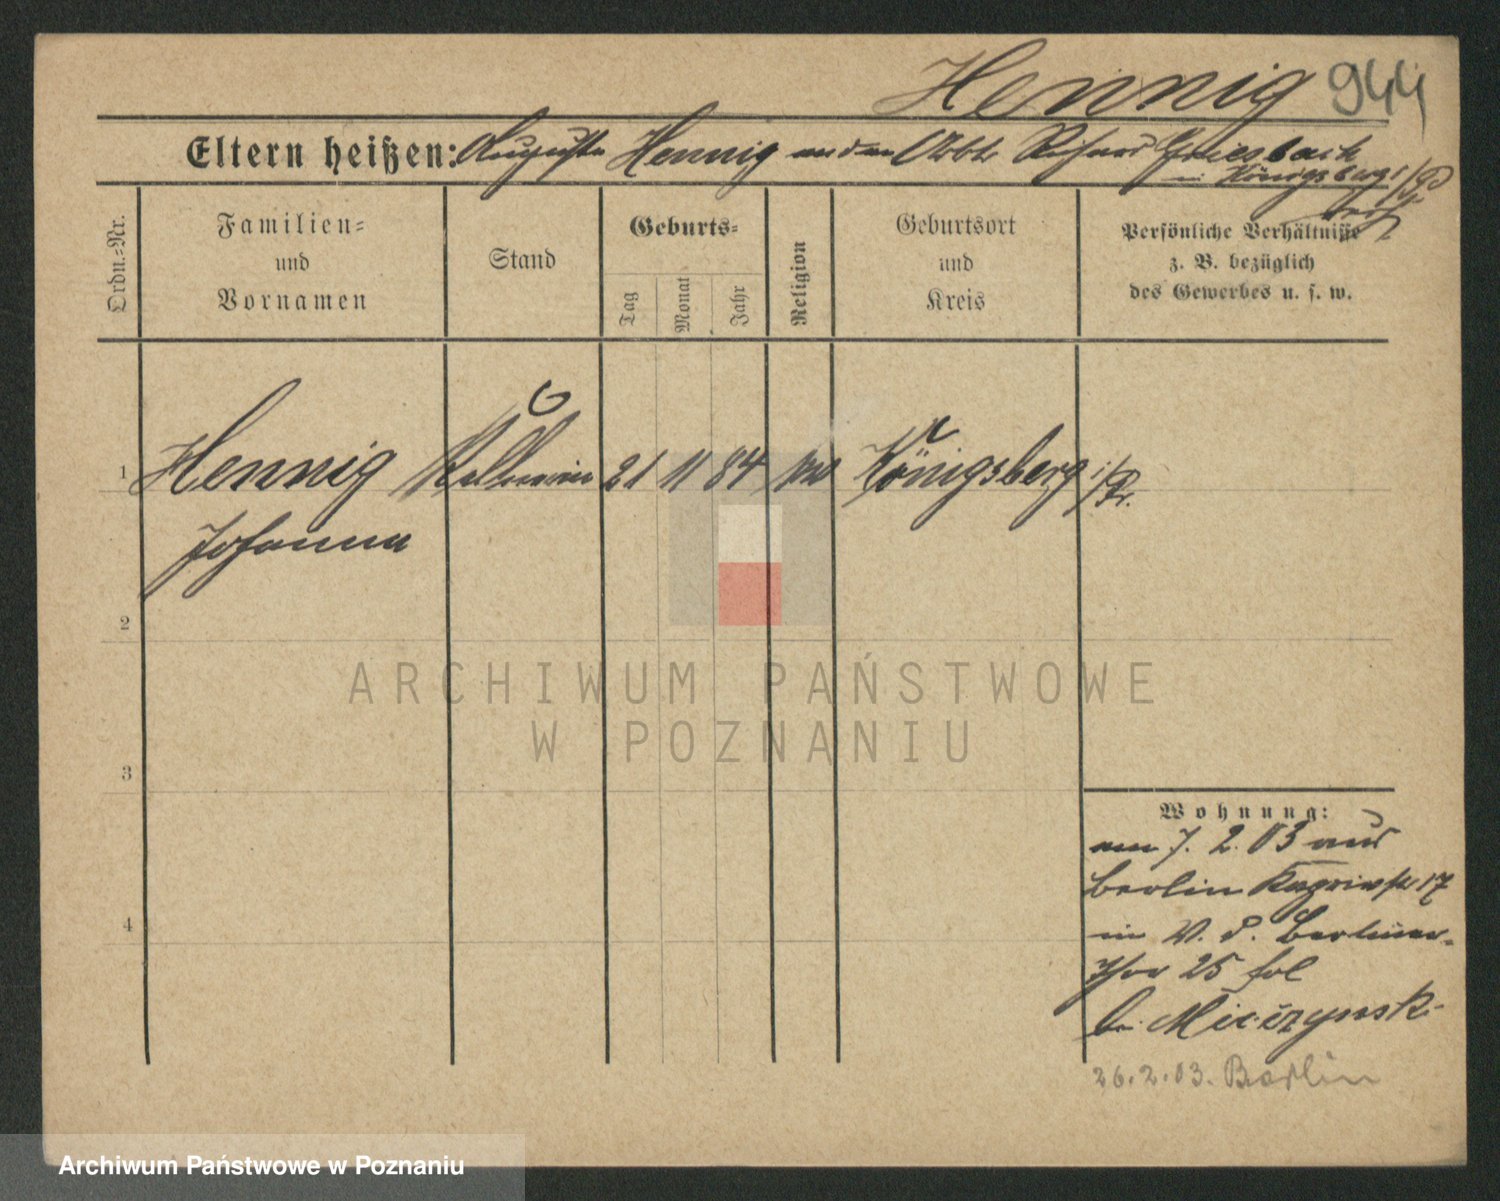 Hennig 944
Eltern heißen: Auguste Hennig und an Arbt. Richard Griesbach
in Königsberg i/Pr.
Ordn.-Nr.
Familien-
und
Vornamen
Stand
Geburts-
Tag
Monat
Jahr
Religion
Geburtsort
und
Kreis
Persönliche Verhältnisse
z. B. bezüglich
des Gewerbes u. s. w.
1 Hennig Kellnerin 21 11 84 Königsberg i/Pr.
Johanna
2
3
4
Wohnung:
am 7. 2. 03 aus
Berlin 17
in W. d. Berliner-
Thor 25
bei
26.2.03. Berlin
ARCHIWUM PAŃSTWOWE
W POZNANIU
Archiwum Państwowe w Poznaniu